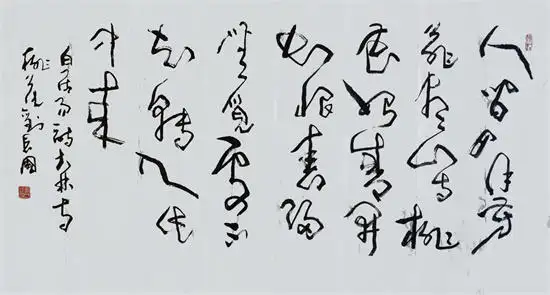 人間四月芳
菲盡山寺桃
花始盛開
長恨春歸
無覓處不
知轉入此
中來
白居易詩大林寺
桃花劉